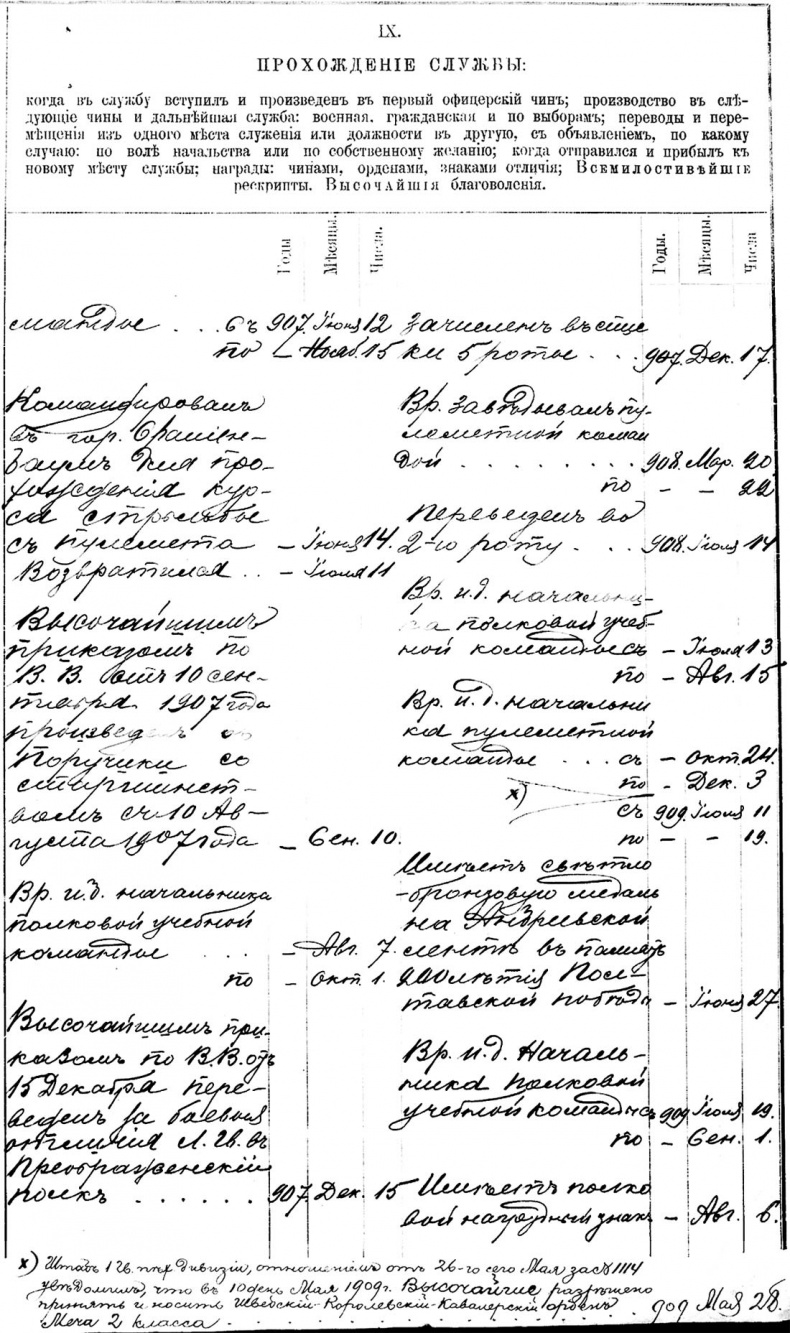 IX.
ПРОХОЖДЕНІЕ СЛУЖБЫ:
когда въ службу вступилъ и произведенъ въ первый офицерскій чинъ; производство въ слѣ-
дующіе чины и дальнѣйшая служба: военная, гражданская и по выборамъ; переводы и пере-
мѣщенія изъ одного мѣста служенія или должности въ другую, съ объявленіемъ, по какому
случаю: по волѣ начальства или по собственному желанію; когда отправился и прибылъ къ
новому мѣсту службы; награды: чинами, орденами, знаками отличія; Всемилостивѣйшіе
рескрипты. Высочайшія благоволенія.
Годы Мѣсяцы. Числа.
мандою . . . съ 907 Іюня 12
по - Нояб. 15
Командированъ
въ гор. Ораніен-
баумъ для про-
хожденія кур-
са стрѣльбы
съ пулемета - Іюня 14.
Возвратился . . - Іюля 11
Высочайшимъ
приказомъ по
В. В. отъ 10 сен-
тября 1907 года
произведенъ въ
Поручики со
старшинст-
вомъ съ 10 Ав-
густа 1907 года - Сен. 10.
Вр. и. д. начальника
полковой учебной
командою . . . - Авг. 7.
по - Окт. 1.
Высочайшимъ при-
казомъ по В. В. отъ
15 Декабря пере-
веденъ за боевыя
отличія Л. Гв. въ
Преображенскій
полкъ . . . . . . 907 Дек. 15
Годы. Мѣсяцы. Числа
Зачисленъ въ спис
ки 5 роты . . . 907. Дек. 17.
Вр. завѣдывалъ пу-
леметной коман
дой . . . . . . . 908. Мар. 20.
по - - 22
Переведенъ во
2-ю роту . . . 908. Іюля 14
Вр. и. д. начальни-
ка полковой учеб-
ной команды съ - Іюля 13
по - Авг. 15
Вр. и. д. начальни
ка пулеметной
команды . . . съ - Окт. 24.
х) по - Дек. 3
съ 909 Іюля 11
по - - 19.
Имѣетъ свѣтло
-бронзовую медаль
на Андреевской
лентѣ въ память
200лѣтія Пол-
тавской побѣды - Іюня 27.
Вр. и. д. Началь-
ника полковой
учебной команды съ 909 Іюля 19.
по - Сен. 1.
Имѣетъ полко
вой нагрудный знакъ - Авг. 6.
х) Штабъ 1 Гв. пѣх. дивизіи, отношеніемъ отъ 26-го сего Мая за № 1114
увѣдомилъ, что въ 10 день Мая 1909 г. Высочайше разрѣшено
принять и носить Шведскій-Королевскій-Кавалерскій орденъ
Меча 2 класса . . . . . . . . . 909 Мая 28.